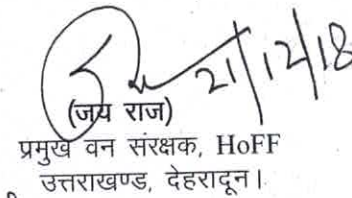 21/12/18
(जय राज)
प्रमुख वन संरक्षक, HoFF
उत्तराखण्ड, देहरादून।